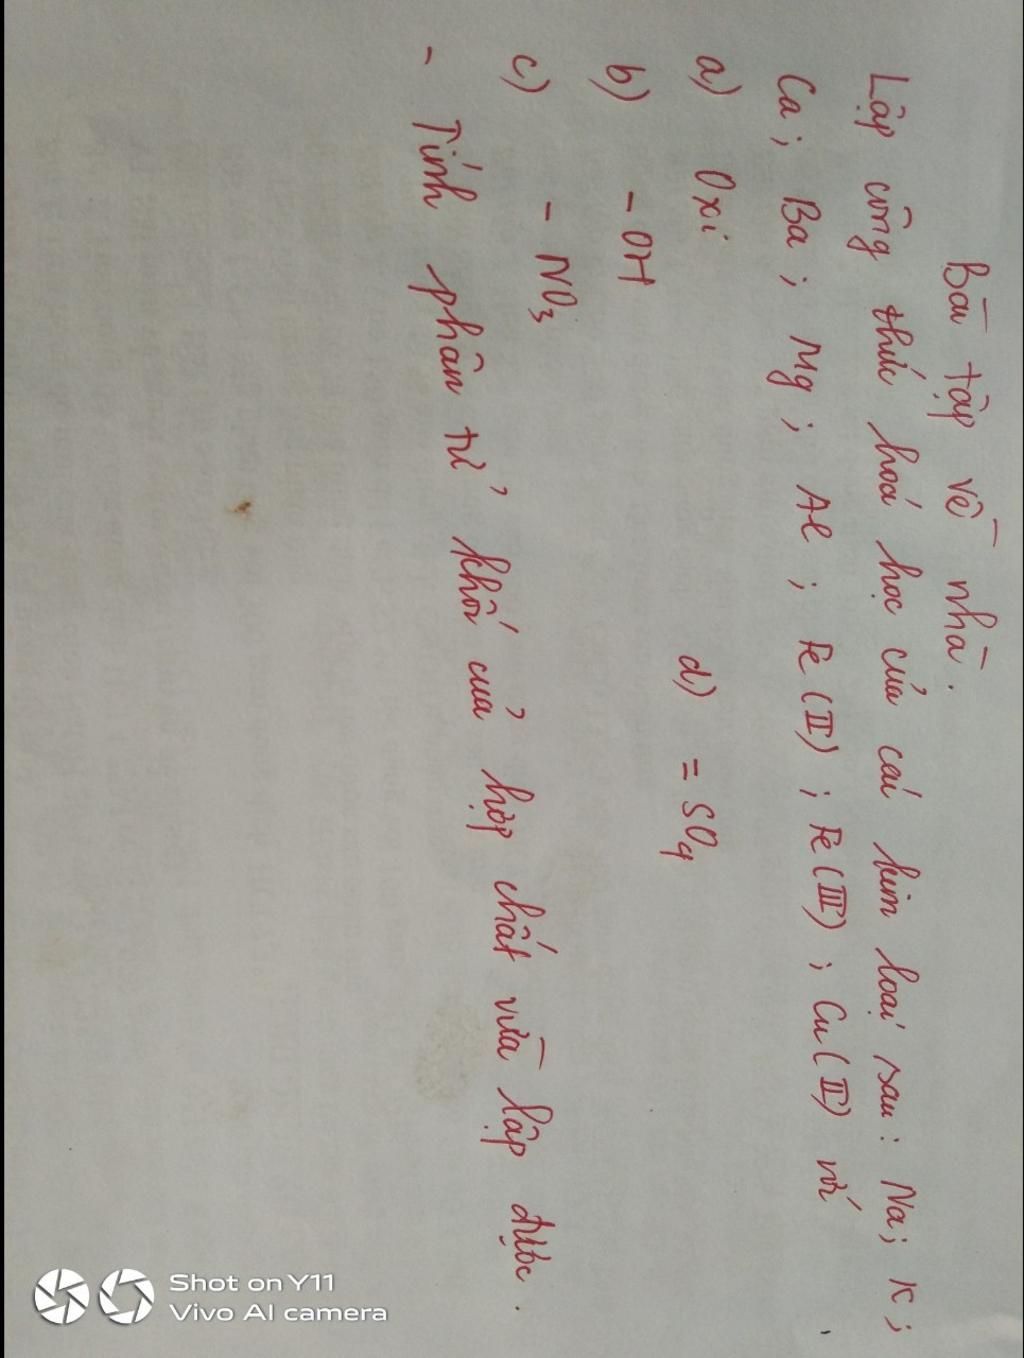 Bài tập về nhà.
Lập công thức hoá học của các kim loại sau: Na; K;
Ca; Ba; Mg; Al; Fe(II); Fe(III); Cu(II) với
a) Oxi
d) = SO₄
b) - OH
c) - NO₃
- Tính phân tử khối của hợp chất vừa lập được.
Shot on Y11
Vivo AI camera